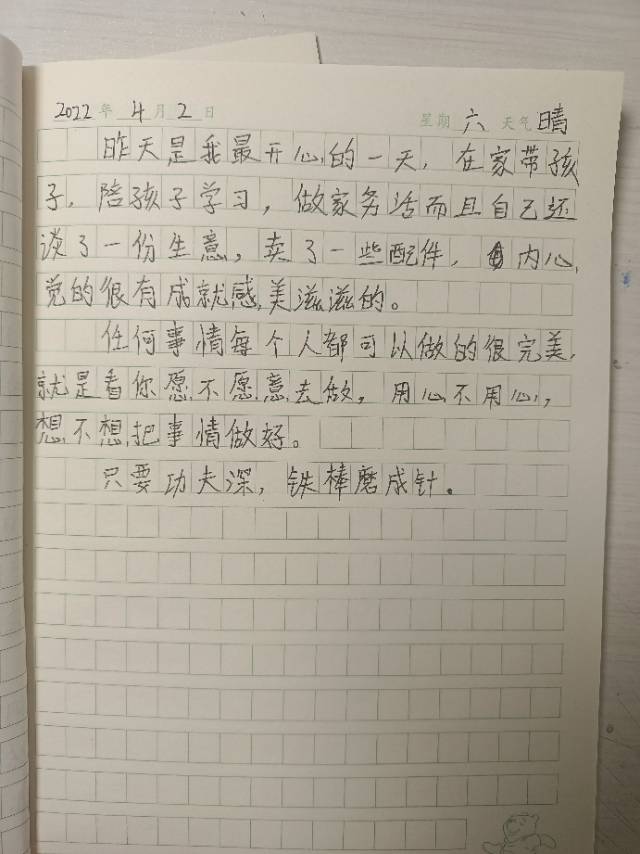 2022年4月2日 星期六 天气晴
昨天是我最开心的一天，在家带孩
子，陪孩子学习，做家务活而且自己还
谈了一份生意，卖了一些配件，内心
觉的很有成就感，美滋滋的。
任何事情每个人都可以做的很完美，
就是看你愿不愿意去做，用心不用心，
想不想把事情做好。
只要功夫深，铁棒磨成针。